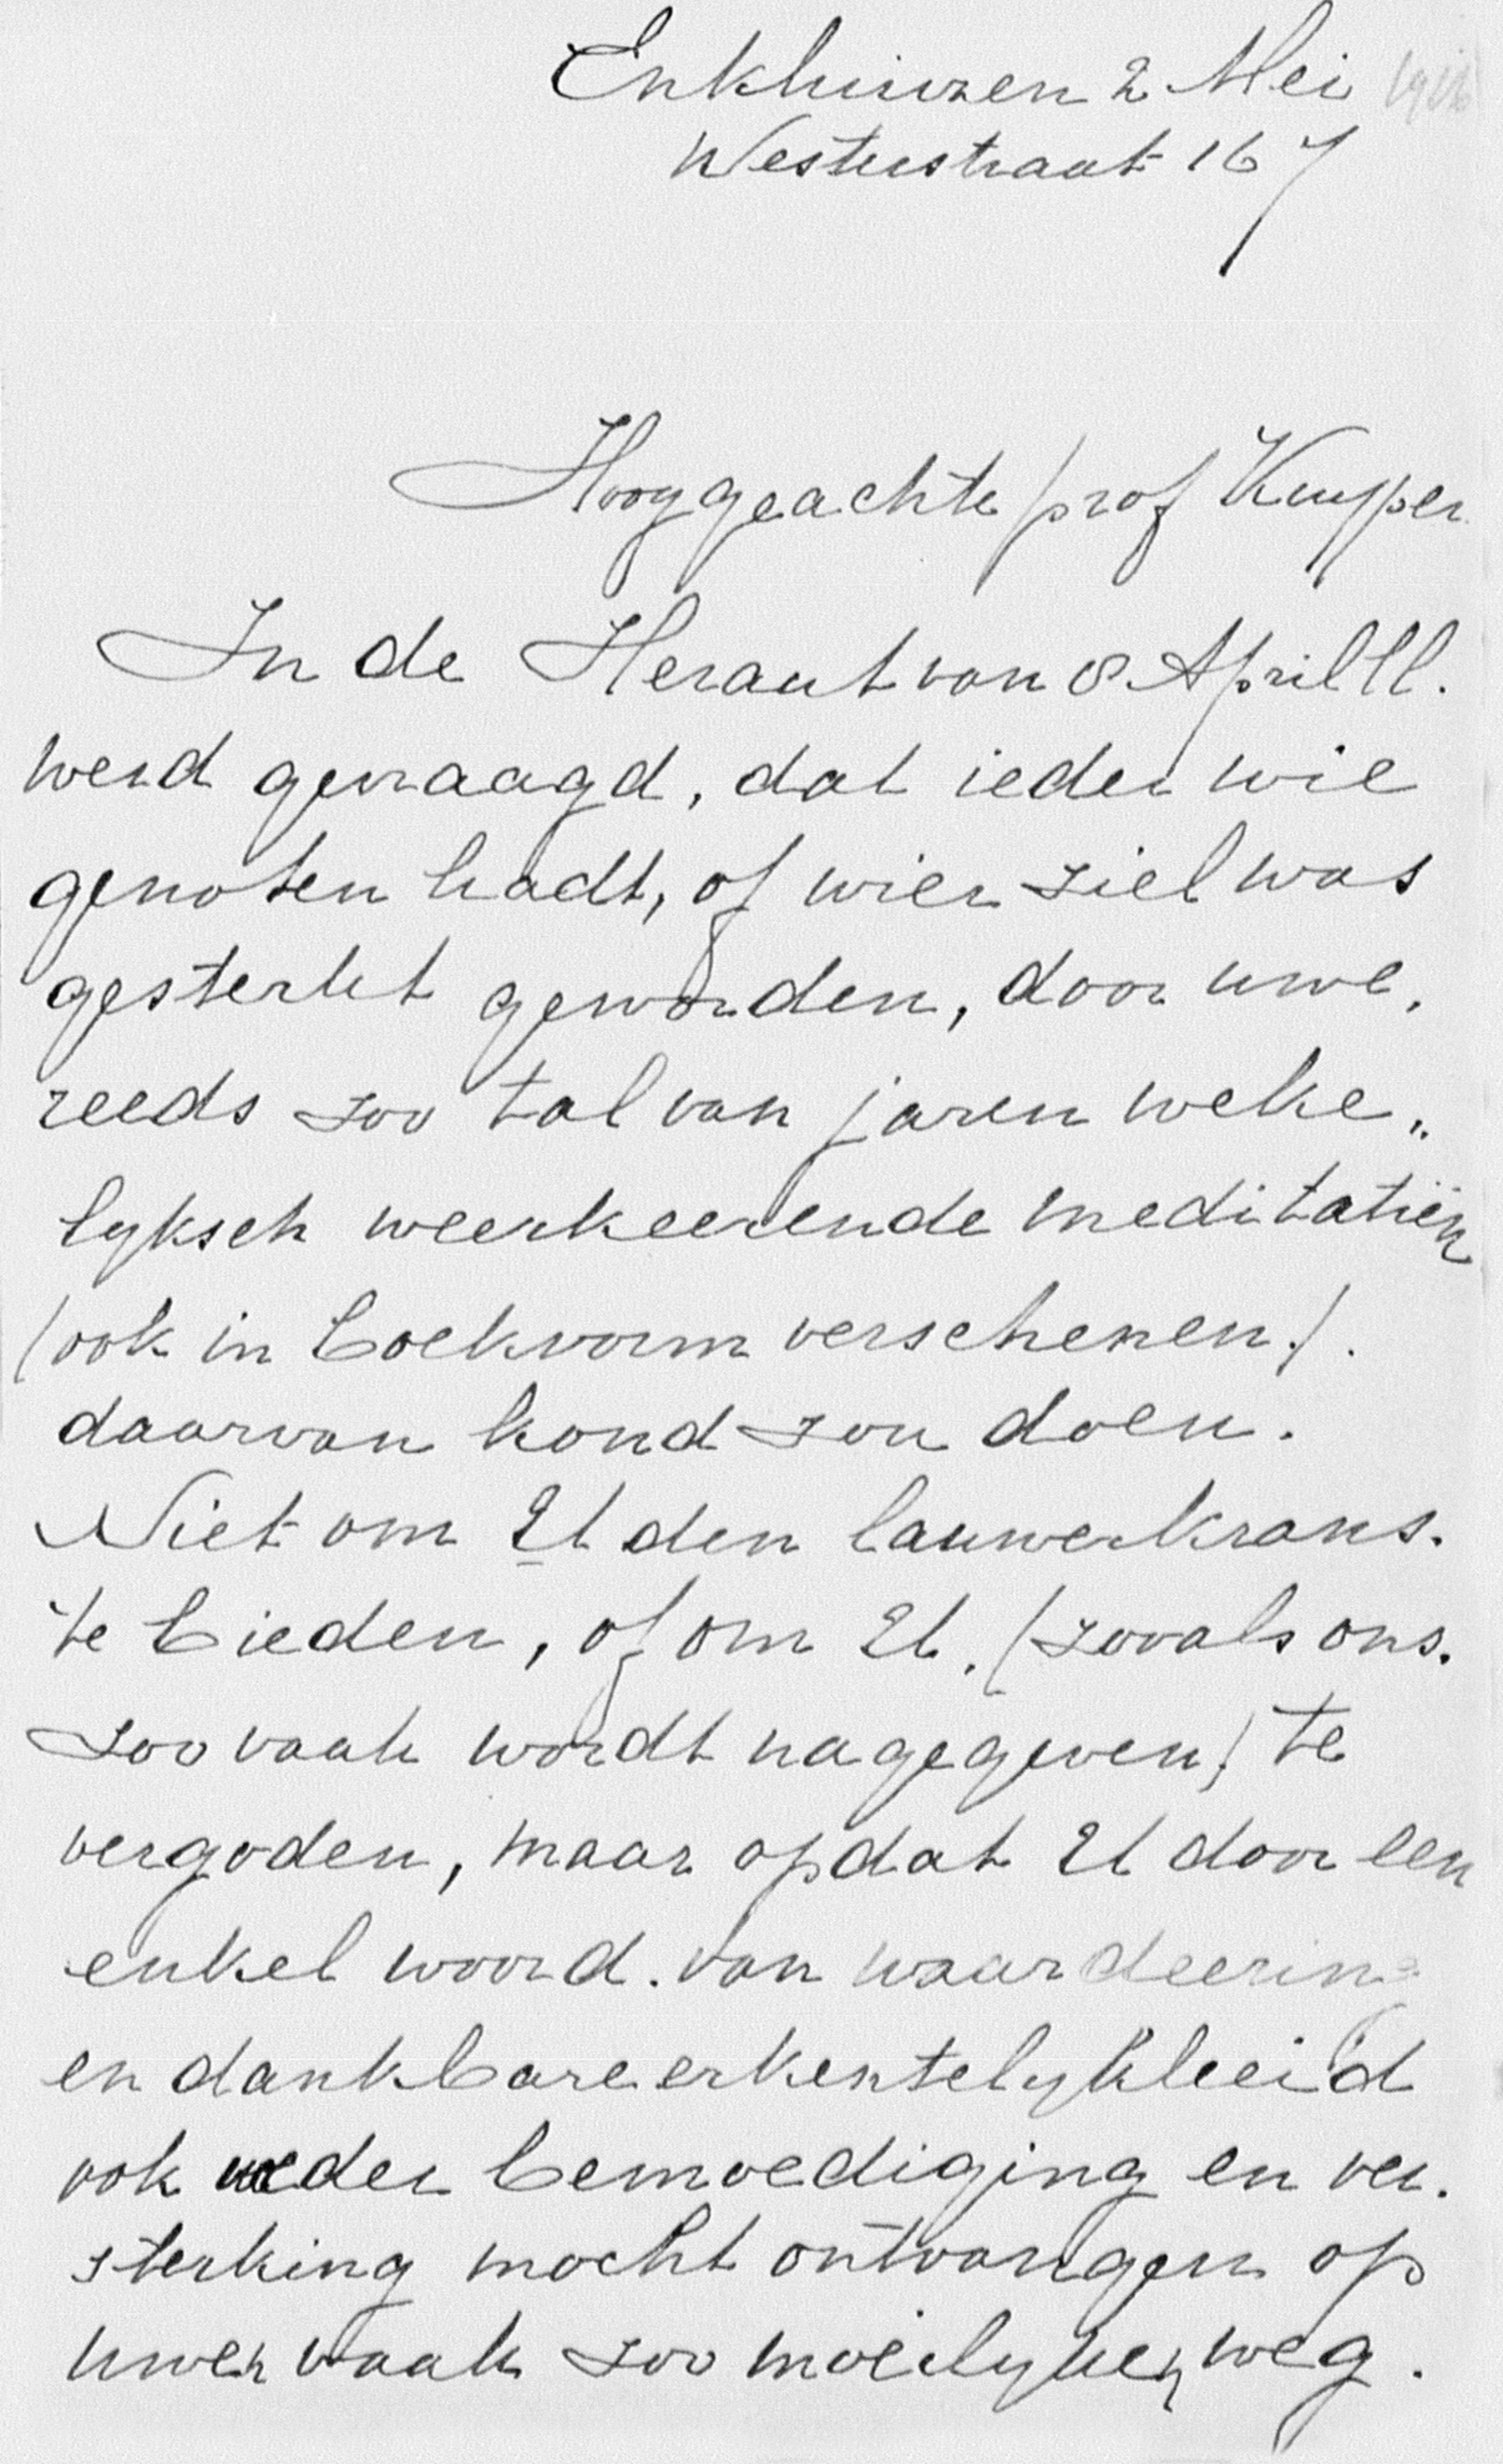 Enkhuizen 2 Mei
Westerstraat 167
Hooggeachte prof Kuyper
In de Heraut van 8 April ll.
werd gevraagd, dat ieder wie
genoten hadt, of wier ziel was
gesterkt geworden, door uwe,
reeds zoo tal van jaren weke„
lyksch weerkeerende meditatiën
(ook in boekvorm verschenen).
daarvan kond zou doen.
Niet om U den lauwerkrans.
te bieden, of om U. (zooals ons.
zoo vaak wordt nagegeven) te
vergoden, maar opdat U door een
enkel woord. van waardeering
en dankbare erkentelykheid
ook weder bemoediging en ver.
sterking mocht ontvangen op
uwen vaak zoo moeilyken weg.